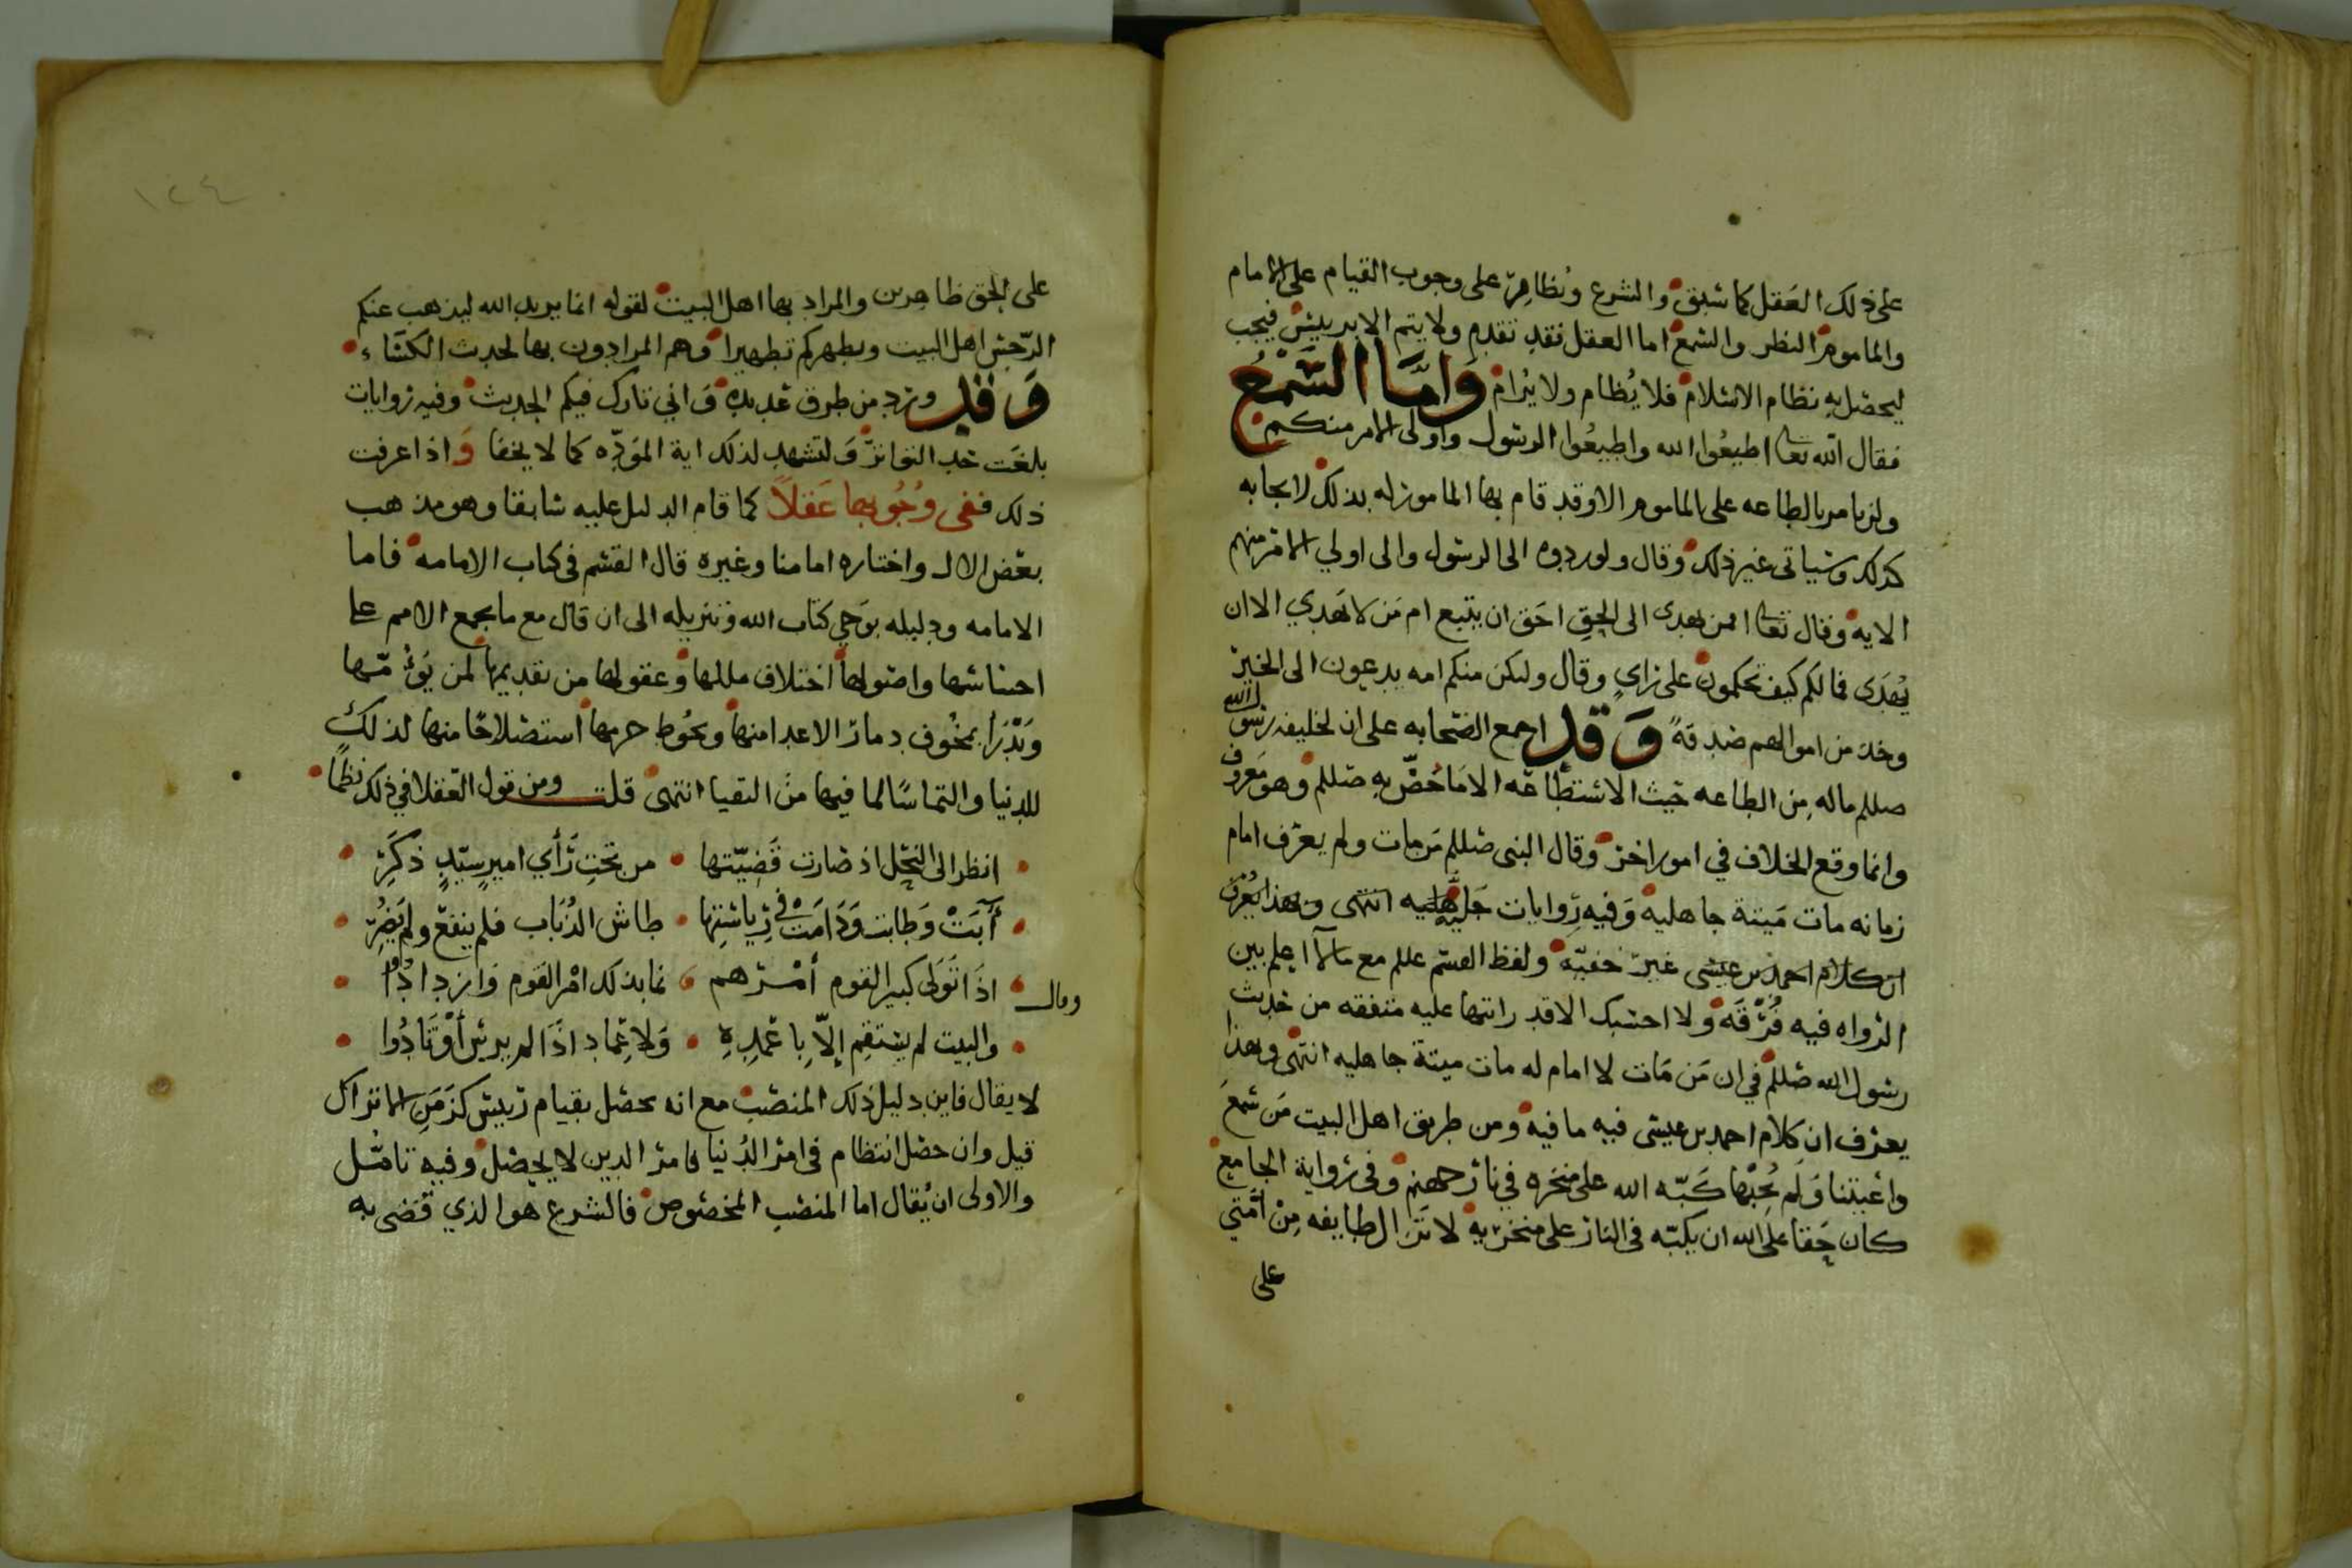 على ذلك العقل كما سبق والشرع ونظاهره على وجوب القيام على الامام
والماموم النظر والسمع اما العقل فقد تقدم ولا يتم الا برييس فيجب
ليحصل به نظام الاسلام فلا يظام ولا يرام وَامَّا السَّمْعُ
فقال الله تعا اطيعُوا الله واطيعُوا الرسول واولى الامر منكم
ولم يامر بالطاعه على الماموم الا وقد قام بها المامور له بذلك لايجابه
كذلك وسياتى غير ذلك وقال ولو ردوه الى الرسول والى اولي الامر منهم
الايه وقال تعا افمن يهدى الى الحق احق ان يتبع ام مَن لا يَهدي الا ان
يُهدَى فما لكم كيف تحكمون على راي وقال ولتكن منكم امه يدعون الى الخير
وخذ من اموالهم صدقةً وَقد اجمع الصحابه على ان لخليفه رسول الله
صللم ماله مِن الطاعه حيث الاستطاعه الا مَا خُصَّ به صللم وهو مَعروف
وانما وقع الخلاف في امور اخر وقال النبى صللم مَن مات ولم يعرف امام
زمانه مات مَيتة جاهليه وَفيه رِوايات جَليه انتهى وبهذا يُعْرَف
ان كلام احمد بن عيسى غير خفيّه ولفظ القسم عللم مع ما لا اعلم بين
الرواه فيه فُرْقَه ولا احسبك الا قد راتها عليه متفقه من حديث
رسول الله صللم في ان مَن مَات لا امام له مات ميتة جاهليه انتهى وبهذا
يعرف ان كلام احمد بن عيسى فيه ما فيه ومن طريق اهل البيت مَن سمعَ
واعيتنا وَلَم يُجبْها كَبّه الله على منخره في نار جهنم وفى رواية الجامع
كان حَقا على الله ان يكبّه فى النار على منخريه لا تَزال طايفه مِن امتي
على
١٢٤
على الحق ظاهرين والمراد بها اهل البيت لقوله انما يريد الله ليذهب عنكم
الرّجس اهل البيت ويطهركم تطهيرا وهم المرادون بها لحديث الكسَاء
وَقد ورد من طرق عديده وَاني تارك فيكم الحديث وفيه روايات
بلغت حد التواتر وَلتشهد لذلك اية المَودّه كما لا يخفا وَاذا عرفت
ذلك ففى وُجُوبها عَقلاً كما قام الدليل عليه سابقا وهو مذهب
بعض الال واختاره امامنا وغيره قال القسم فى كتاب الامامه فاما
الامامه ودليله بوَحي كتاب الله وتنزيله الى ان قال مع ما يجمع الامم على
اجناسها واصولها اختلاف مللها وعقولها من تقديمها لمن يَؤُمّها
وَيَدْرَا بمخُوف دمار الاعدا منها ويحُوط حرمها استصلاحًا منها لذلك
للدنيا والتماسًا لما فيها منَ البقيا انتهى قلت ومن قول العقلا في ذلك نظمًا
انظر الى النحل اذ صارت قَضِيّتها • من تحتِ رَأي اميرٍ سيّدٍ ذكَرِ
آبَتْ وَطابت وَدَامَت فى رِياستِها • طاش الذُبَاب فلم ينفعْ ولم يَضُرِّ
وقال اذَا تَوَلى كبير القوم أمْرهم • نما بذلك امْر القوم وَازدادُوا
والبيت لم يستقِم إلّا بِاعْمِدِةٍ • وَلا عِمَاد اذَا لم يرسَ أوْتَادُوا
لا يقال فاين دليل ذلك المنصب مع انه يحصل بقيام رييس كزَمَنِ الاتراك
قيل وان حصل انتظام فى امر الدُنيا فامر الدين لا يحصل وفيه تامّل
والاولى ان يُقال اما المنصب المخصُوص فالشرع هو الذي قضى به